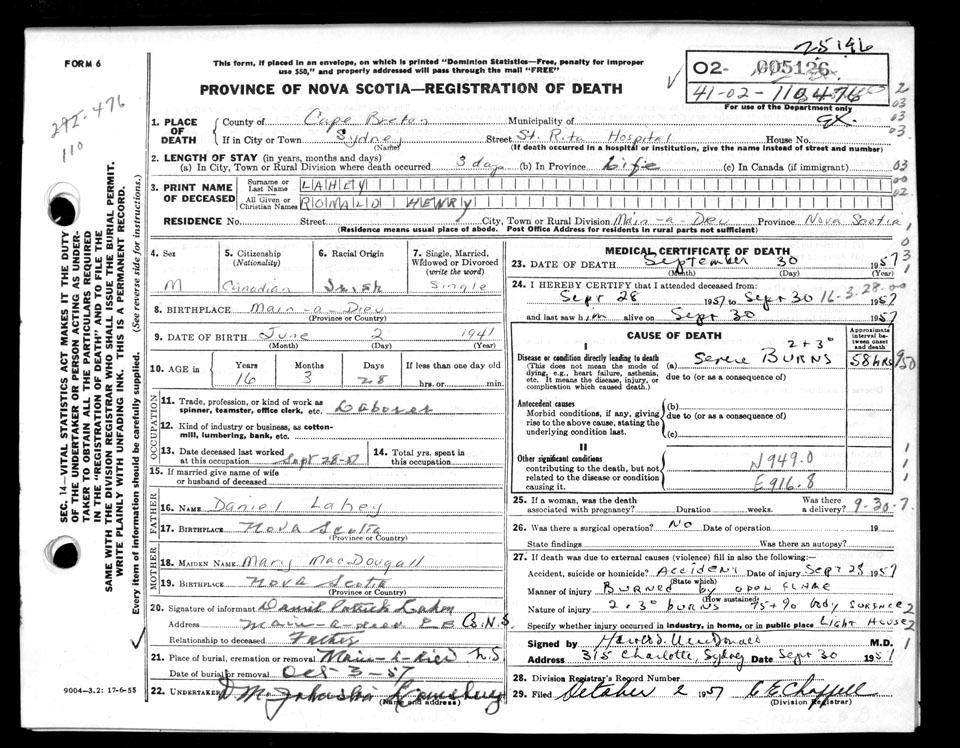 25196
FORM 6
This form, if placed in an envelope, on which is printed "Dominion Statistics—Free, penalty for improper
use $50," and properly addressed will pass through the mail "FREE"
O2- 005126
41-02-
For use of the Department only
PROVINCE OF NOVA SCOTIA—REGISTRATION OF DEATH
292-476
110
SEC. 14—VITAL STATISTICS ACT MAKES IT THE DUTY
OF THE UNDERTAKER OR PERSON ACTING AS UNDER-
TAKER TO OBTAIN ALL THE PARTICULARS REQUIRED
IN THE "REGISTRATION OF DEATH" AND TO FILE THE
SAME WITH THE DIVISION REGISTRAR WHO SHALL ISSUE THE BURIAL PERMIT.
WRITE PLAINLY WITH UNFADING INK. THIS IS A PERMANENT RECORD.
Every item of information should be carefully supplied. (See reverse side for instructions.)
1. PLACE OF DEATH County of Cape Breton Municipality of
If in City or Town Sydney (Name) Street St. Rita Hospital House No.
(If death occurred in a hospital or institution, give the name instead of street and number)
2. LENGTH OF STAY (in years, months and days)
(a) In City, Town or Rural Division where death occurred 3 days (b) In Province Life (c) In Canada (if immigrant)
3. PRINT NAME OF DECEASED Surname or Last Name LAHEY
All Given or Christian Names RONALD HENRY
RESIDENCE No. Street City, Town or Rural Division Main-a-Dieu Province Nova Scotia
(Residence means usual place of abode. Post Office Address for residents in rural parts not sufficient)
4. Sex M
5. Citizenship (Nationality) Canadian
6. Racial Origin Irish
7. Single, Married, Widowed or Divorced (write the word) Single
8. BIRTHPLACE Main-a-Dieu
(Province or Country)
9. DATE OF BIRTH June 2 1941
(Month) (Day) (Year)
10. AGE Years 16 Months 3 Days 28 If less than one day old hrs. or min.
OCCUPATION
11. Trade, profession, or kind of work as spinner, teamster, office clerk, etc. Laborer
12. Kind of industry or business, as cotton-mill, lumbering, bank, etc.
13. Date deceased last worked at this occupation Sept 28-57
14. Total yrs. spent in this occupation
15. If married give name of wife or husband of deceased
FATHER
16. NAME Daniel Lahey
17. BIRTHPLACE Nova Scotia
(Province or Country)
MOTHER
18. MAIDEN NAME Mary MacDougall
19. BIRTHPLACE Nova Scotia
(Province or Country)
20. Signature of informant Daniel Patrick Lahey
Address Main-a-Dieu C.B. Co. N.S.
Relationship to deceased Father
21. Place of burial, cremation or removal Main-a-Dieu N.S.
Date of burial or removal Oct 3-57
22. UNDERTAKER
(Name and address)
9004—3.2: 17-6-55
MEDICAL CERTIFICATE OF DEATH
23. DATE OF DEATH September 30 1957
(Month) (Day) (Year)
24. I HEREBY CERTIFY that I attended deceased from:
Sept 28 1957 to Sept 30 1957
16-3-28-00
and last saw him alive on Sept 30 1957
CAUSE OF DEATH
Approximate interval between onset and death
I
Disease or condition directly leading to death
(This does not mean the mode of dying, e.g., heart failure, asthenia, etc. It means the disease, injury, or complication which caused death.)
(a) Severe 2+3° BURNS 58 HRS
due to (or as a consequence of)
Antecedent causes
Morbid conditions, if any, giving rise to the above cause, stating the underlying condition last.
(b)
due to (or as a consequence of)
(c)
II
Other significant conditions
contributing to the death, but not related to the disease or condition causing it.
N949.0
E916.8
25. If a woman, was the death associated with pregnancy? Duration weeks. Was there a delivery? 9-30-7.
26. Was there a surgical operation? NO Date of operation 19
State findings Was there an autopsy?
27. If death was due to external causes (violence) fill in also the following:—
Accident, suicide or homicide? ACCIDENT Date of injury Sept 28 1957
(State which)
Manner of injury BURNED by OPEN FLAME
(How sustained)
Nature of injury 2+3° burns 75+90 body surface
Specify whether injury occurred in industry, in home, or in public place LIGHT HOUSE
Signed by Harold MacDonald M.D.
Address 315 Charlotte, Sydney Date Sept 30 1957
28. Division Registrar's Record Number
29. Filed October 2 1957 C E Chappell
(Division Registrar)